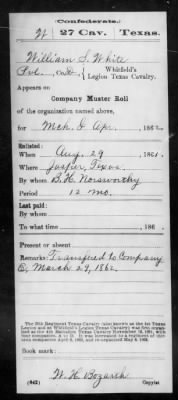 (Confederate.)
W 27 Cav. Texas.
William S. White
Pvt., Co. H Whitfield's
Legion Texas Cavalry.
Appears on
Company Muster Roll
of the organization named above,
for Mch. & Apr., 1862.
Enlisted:
When Aug. 29, 1861.
Where Jasper, Texas.
By whom B. H. Norsworthy
Period 12 mo.
Last paid:
By whom
To what time , 186 .
Present or absent
Remarks: Transfered to Company
B, March 29, 1862.
The 27th Regiment Texas Cavalry (also known as the 1st Texas
Legion and as Whitfield's Legion Texas Cavalry) was first organ-
ized as the 4th Battalion Texas
Book mark:
W. H. Bozarth
(642) Copyist.